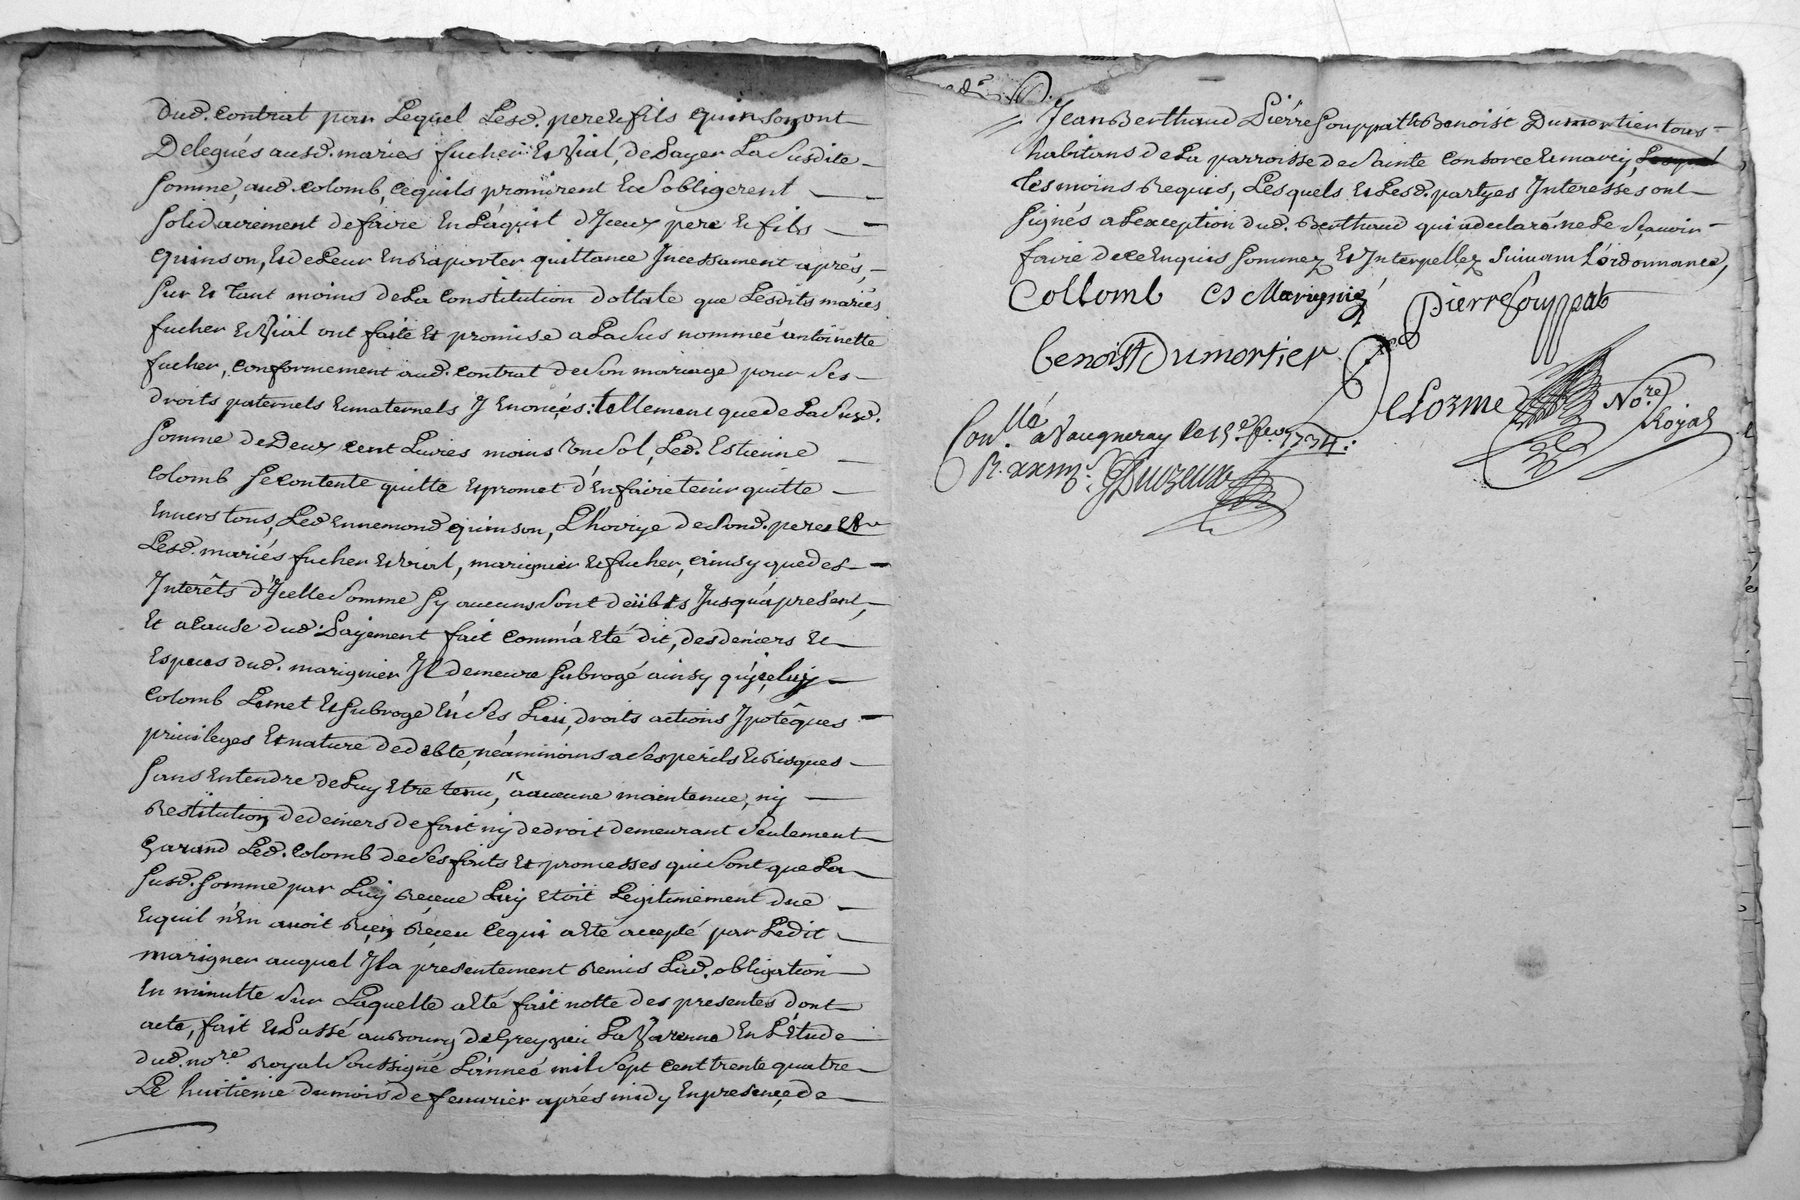 dud. contrat par Lequel Lesd. pere et fils quinson ont
Delegués ausd. mariés fucher et Vial, de Payer La Susdite
Somme, aud. Colomb, cequils promirent et Sobligerent
Solidairement de faire En L'aquit d'Jceux pere et fils
quinson, et de Leur En Raporter quittance Jncessament aprés,
Sur et tant moins de La Constitution dottale que Lesdits mariés
fucher et Vial ont faite et promise a La Sus nommeé antoinette
fucher, conformement aud. contrat de Son mariage pour Ses
droits paternels et maternels y Enoncés: tellement que de La Susd.
Somme de Deux cent Livres moins Un Sol, Led. Estienne
Colomb Se contente quitte et promet d'En faire tenir quitte
Envers tous, Led Ennemond quinson, L'hoirye de Sond. pere et
Lesd. mariés fucher et vial, marignier et fucher, ainsy que des
Jnterêts d'Jcelle Somme Sy aucuns Sont deübts Jusqu'apresent,
Et a Cause dud. Payement fait comm'a eté dit, des deniers et
Especes dud. marignier Jl demeure Subrogé ainsy qu'jceluy
Colomb Le met et Subroge En Ses Lieu, droits actions Jpotêques
privileges et nature de debte, néaminoins a Ses perils et Risques
Sans Entendre de Luy Etre tenu, a aucune maintenue, ny
Restitution de deniers de fait ny de droit demeurant Seulement
Garand Led. Colomb de Ses faits et promesses qui Sont que La
Susd. Somme par Luy Receue Luy Etoit Legitimement due
Et quil n'En avoit Rien Receu Ce qui a eté accepté par Ledit
marigner auquel Jl a presentement Remis Lad. obligation
En minutte Sur Laquelle a eté fait notte des presentes dont
acte, fait et Passé au Bourg de Greyzieu La Varenne En L'Etude
dud. no.re Royal Soussigné L'anneé mil Sept Cent trente quatre
Le huitieme du mois de fevvrier aprés midy En presence de
Jean Berthaud Pierre Souppat et Benoist Dumortier tous
habitans de La parroisse de Sainte Consorce et marcy,
tesmoins Requis, Lesquels et Lesd. partyes Jnteressés ont
Signés a L'exception dud. Berthaud qui a declaré ne Le Sçavoir
faire de ce Enquis Sommez et Jnterpellez Suivant L'ordonnance,
Collomb
Pierre Souppat
benoist Dumortier
Delorme No.re Royal
Con.llé a Vaugneray Le 15e. fev. 1734: